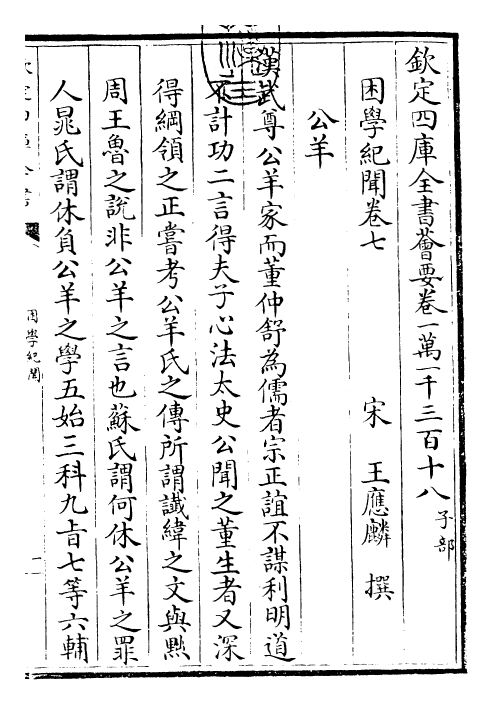 欽定四庫全書薈要卷一萬一千三百十八子部
困學紀聞卷七
宋 王應麟 撰
公羊
漢武尊公羊家而董仲舒為儒者宗正誼不謀利明道
不計功二言得夫子心法太史公聞之董生者又深
得綱領之正嘗考公羊氏之傳所謂讖緯之文與黜
周王魯之說非公羊之言也蘇氏謂何休公羊之罪
人晁氏謂休負公羊之學五始三科九旨七等六輔
欽定四庫全書
困學紀聞
一